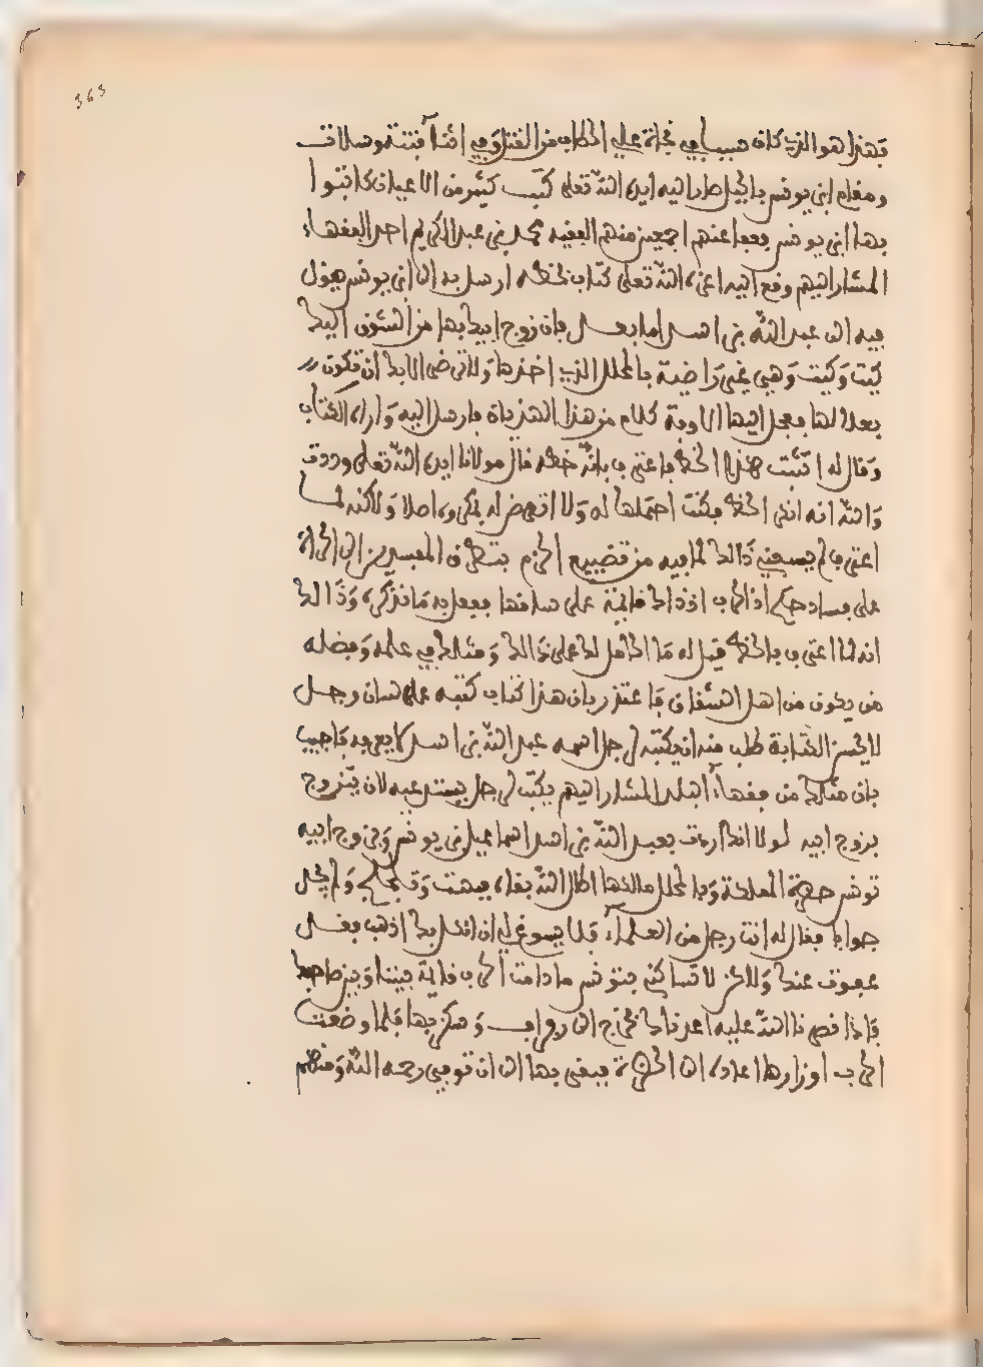 363
فهذا هو الذي كان سببا في نجاة علي الحطاب من القتل وفي اثناء فتنة وسلات
ومقام ابن يونس بالجبل صار اليه ايده الله تعلى كتب كثير من الاعيان كاتبوا
بها ابن يونس فعفا عنهم اجمعين منهم الفقيه محمد بن عبد الكريم احد الفقهاء
المشار اليهم وقع اليه اعزه الله تعلى كتاب بخطه ارسل به الى ابن يونس يقول
فيه الى عبد الله بن اسد اما بعد فان زوج ابيك بها من الشوق اليك
كيت وكيت وهي غير راضية بالمحلل الذي اخذها ولا ترضى الا بك ان تكون
بعلا لها فعجل اليها الاوبة كلام من هذا الهذيان فارسل اليه واراه الكتاب
وقال له اتثبت هذا الخط فاعترف بانه خطه قال مولانا ايده الله تعلى وددت
والله انه انكر الخط فكنت احتملها له ولا اتعرض له بمكروه اصلا ولاكنه لما
اعترف لم يسعني ذالك لما فيه من تضييع الحزم بتطرق المفسدين الى الجراة
على فساد حكم اذ الحرب اذ ذاك قائمة على ساقها ففعل به ما نذكره وذالك
انه لما اعترف بالخط قيل له ما الحامل لك على ذالك ومثلك في علمه وفضله
من يكون من اهل الشقاق فاعتذر بان هذا كتاب كتبه على لسان رجل
لا يحسن الكتابة طلب منه ان يكتبه لرجل اسمه عبد الله بن اسد لا يعرفه فاجيب
بان مثلك من فقهاء البلد المشار اليهم يكتب لرجل يستدعيه لان يتزوج
بزوج ابيه لولا انك اردت بعبد الله بن اسد اسماعيل بن يونس وبزوج ابيه
تونس جهة المملكة وبالمحلل مالكها اطال الله بقاءه فبهت ولم يحر
جوابا فقال له انت رجل من العلماء فلا يسوغ لي ان انكل بك اذهب فقد
عفوت عنك ولاكن لا تساكني بتونس ما دامت الحرب قائمة بيننا وبين صاحبك
فاذا نصرنا الله عليه اعدناك فخرج الى وسكن بها فلما وضعت
الحرب اوزارها اعاده الى الحضرة فبقي بها الى ان توفي رحمه الله ومنهم